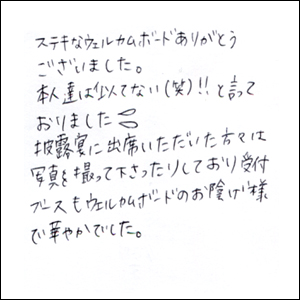 ステキなウェルカムボードありがとう
ございました。
本人達は似てない(笑)!!と言って
おりました
披露宴に出席いただいた方々は
写真を撮って下さったりしており受付
ブースもウェルカムボードのお陰げ様
で華やかでした。